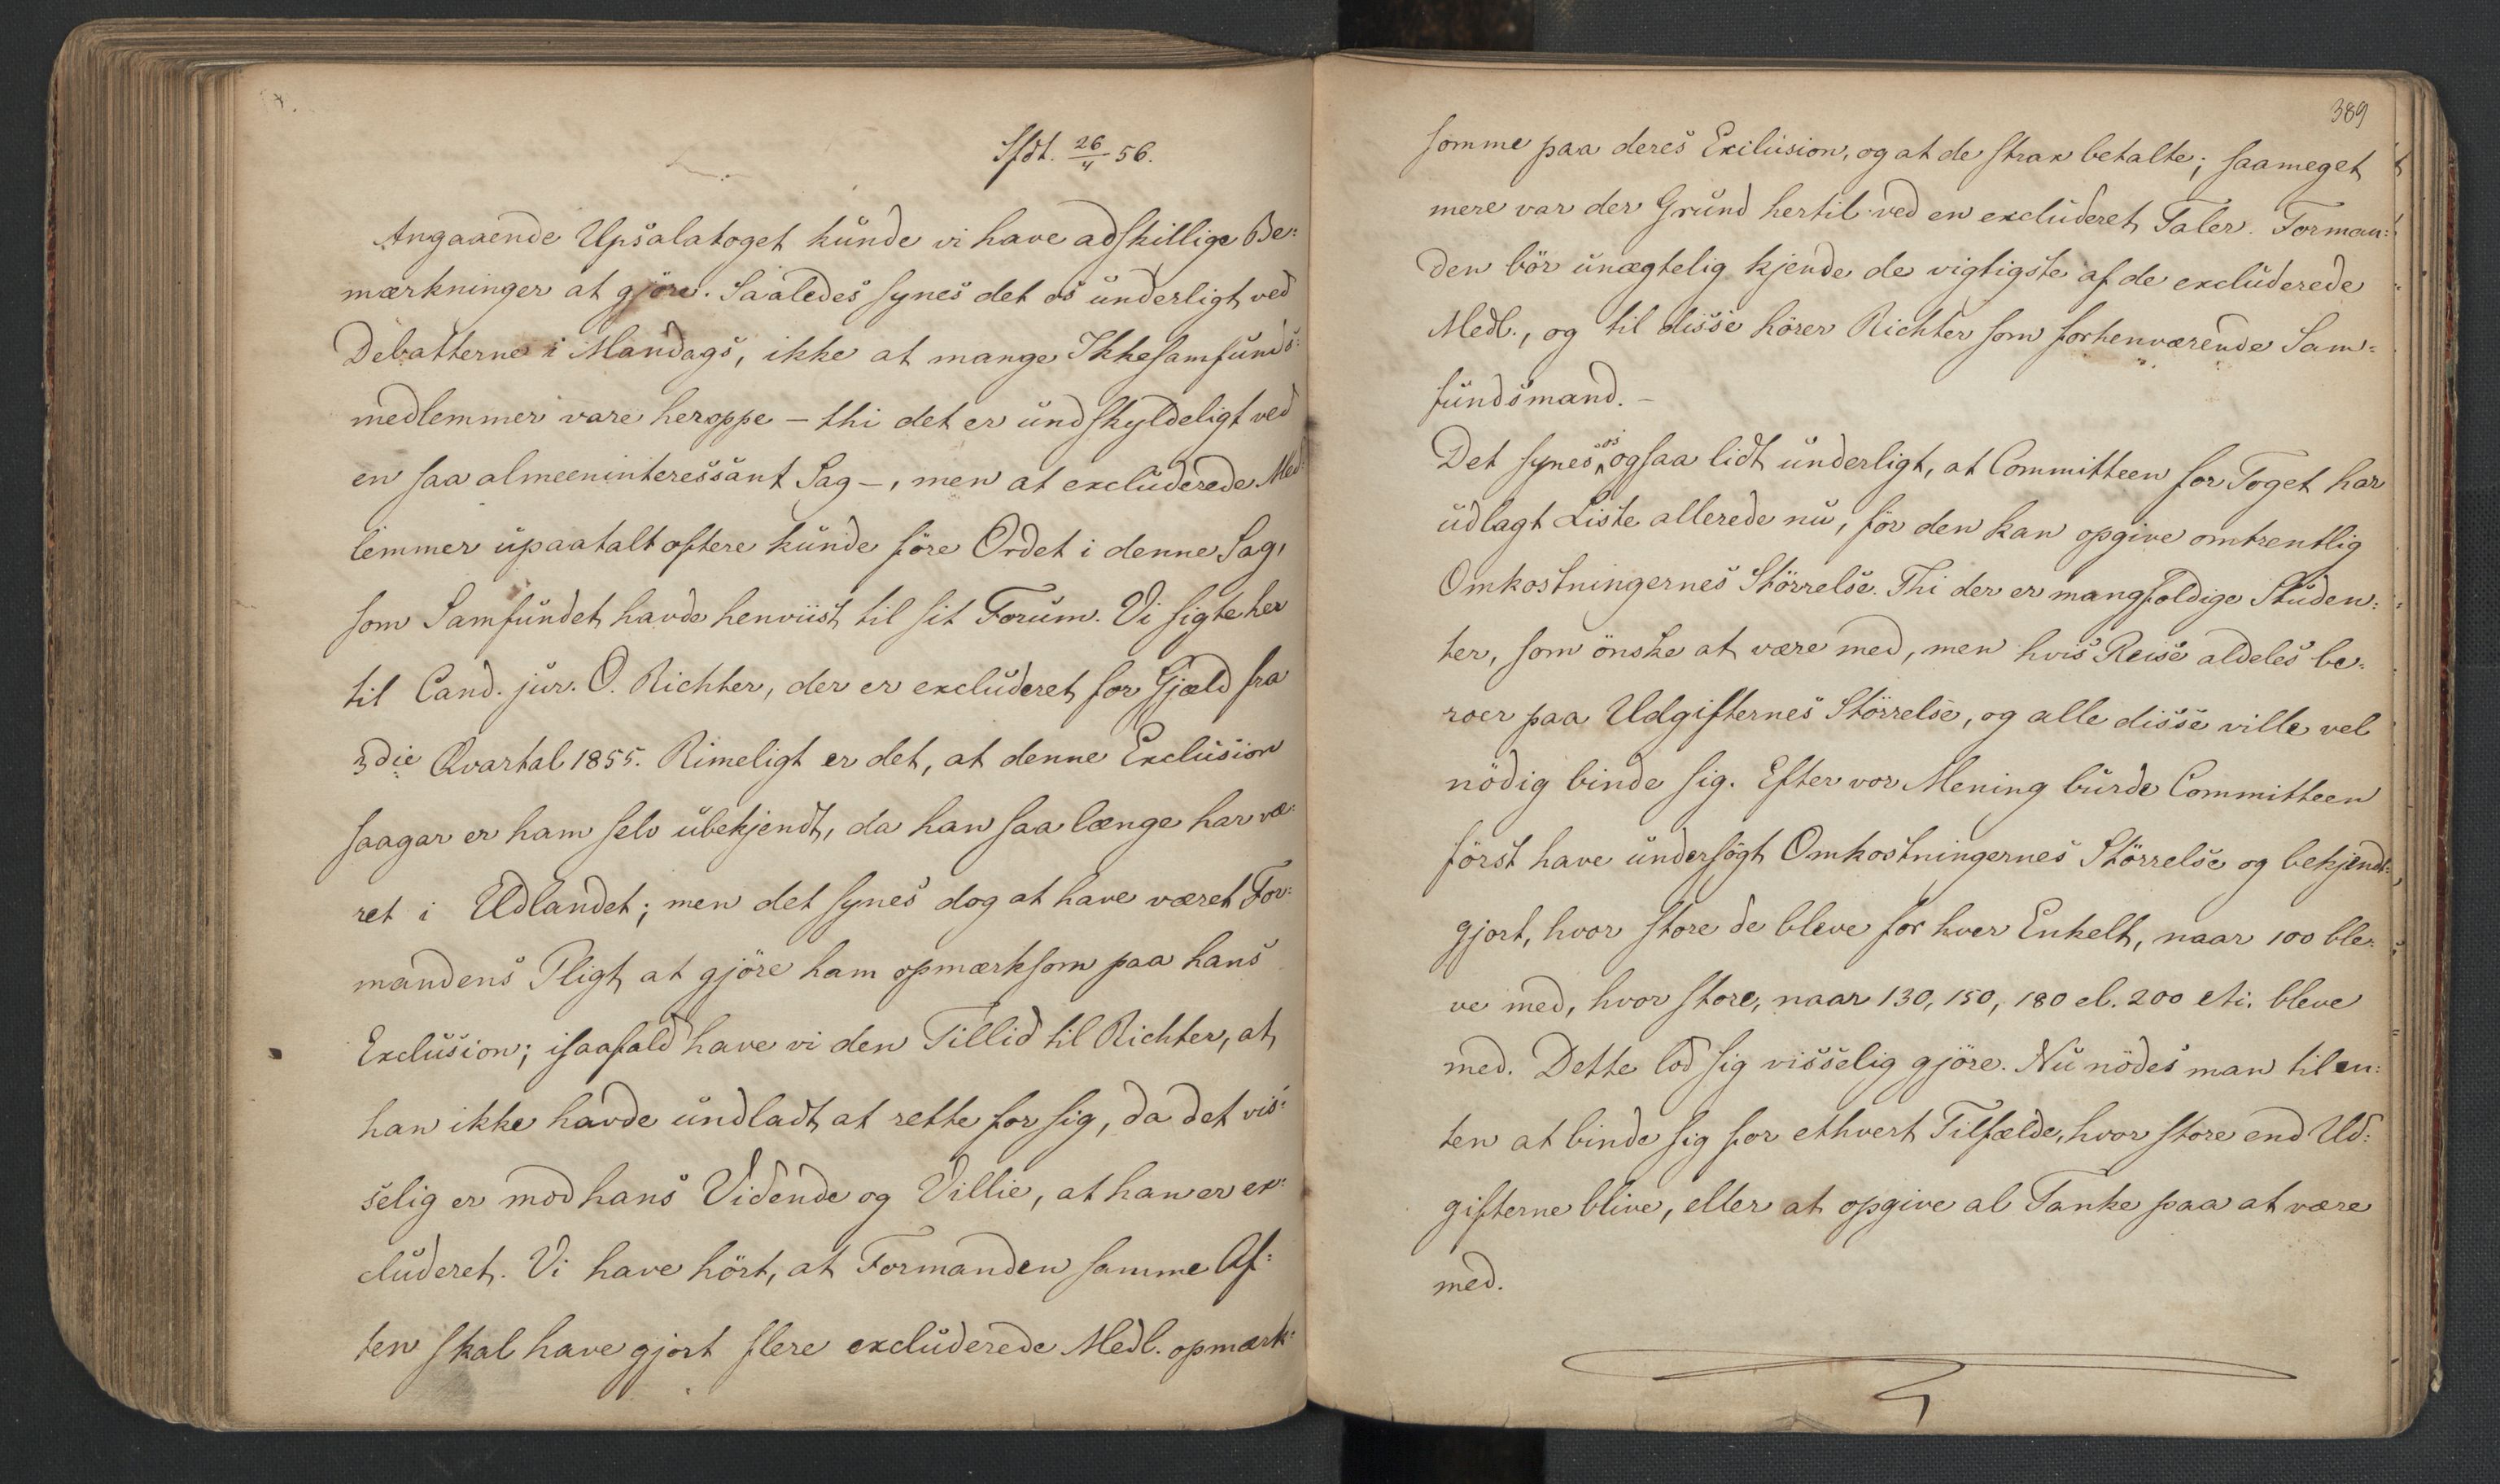 Ifdt. 26/4 56.
Angaaende Upsalatoget kunde vi have adskillige Be-
mærkninger at gjöre. Saaledes synes det os underligt ved
Debatterne i Mandags, ikke at mange Ikkesamfunds-
medlemmer vare heroppe – thi det er undskyldeligt ved
en saa almeeninteressant Sag –, men at excluderede Med-
lemmer upaatalt oftere kunde före Ordet i denne Sag,
som Samfundet havde henviist til sit Forum. Vi sigte her
til Cand. jur. O. Richter, der er excluderet for Gjæld fra
3die Qvartal 1855. Rimeligt er det, at denne Exclusion
saagar er ham selv ubekjendt, da han saa længe har væ-
ret i Udlandet; men det synes dog at have været For-
mandens Pligt at gjöre ham opmærksom paa hans
Exclusion; isaafald have vi den Tillid til Richter, at
han ikke havde undladt at rette for sig, da det vis-
selig er mod hans Vidende og Villie, at han er ex-
cluderet. Vi have hört, at Formanden samme Af-
ten skal have gjort flere excluderede Medl. opmærk-
389
somme paa deres Exclusion, og at de strax betalte; saameget
mere var der Grund hertil ved en excluderet Taler. Forman-
den bör unægtelig kjende de vigtigste af de excluderede
Medl., og til disse hörer Richter som forhenværende Sam-
fundsmand. –
Det synes os ogsaa lidt underligt, at Committeen for Toget har
udlagt Liste allerede nu, för den kan opgive omtrentlig
Omkostningernes Störrelse. Thi der er mangfoldige Studen-
ter, som önske at være med, men hvis Reise aldeles be-
roer paa Udgifternes Störrelse, og alle disse ville vel
nödig binde sig. Efter vor Mening burde Committeen
först have undersögt Omkostningernes Störrelse og bekjendt-
gjort, hvor store de bleve for hver Enkelt, naar 100 ble-
ve med, hvor store, naar 130, 150, 180 el. 200 bleve
med. Dette lod sig visselig gjöre. Nu nödes man til en-
ten at binde sig for ethvert Tilfælde, hvor store end Ud-
gifterne blive, eller at opgive al Tanke paa at være
med.